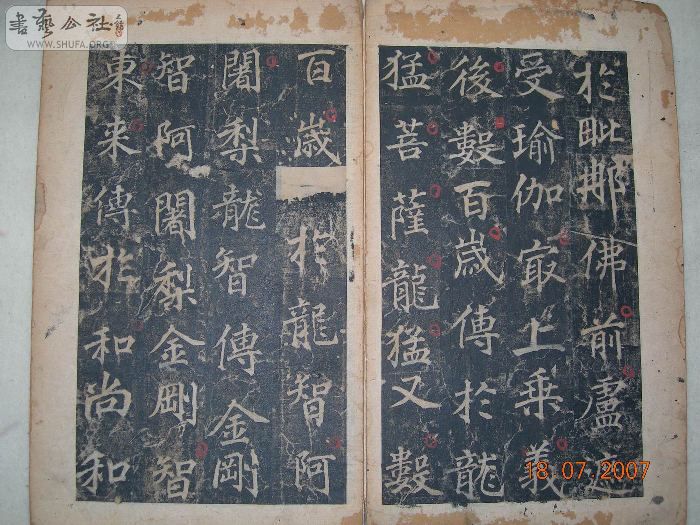 書藝公社
WWW.SHUFA.ORG
於毗那佛前盧遮
受瑜伽冣上乗義
後數百歲傳於龍
猛菩薩龍猛又數
百歲於龍智阿
闍梨龍智傳金剛
智阿闍梨金剛智
東来傳於和尚和
18.07.2007